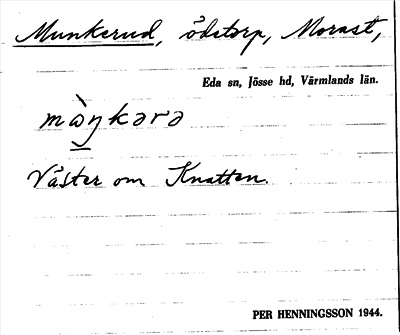 Munkerud, ödetorp, Morast,
Eda sn, Jösse hd, Värmlands län.
màŋkərə
Väster om Knatten.
PER HENNINGSSON 1944.